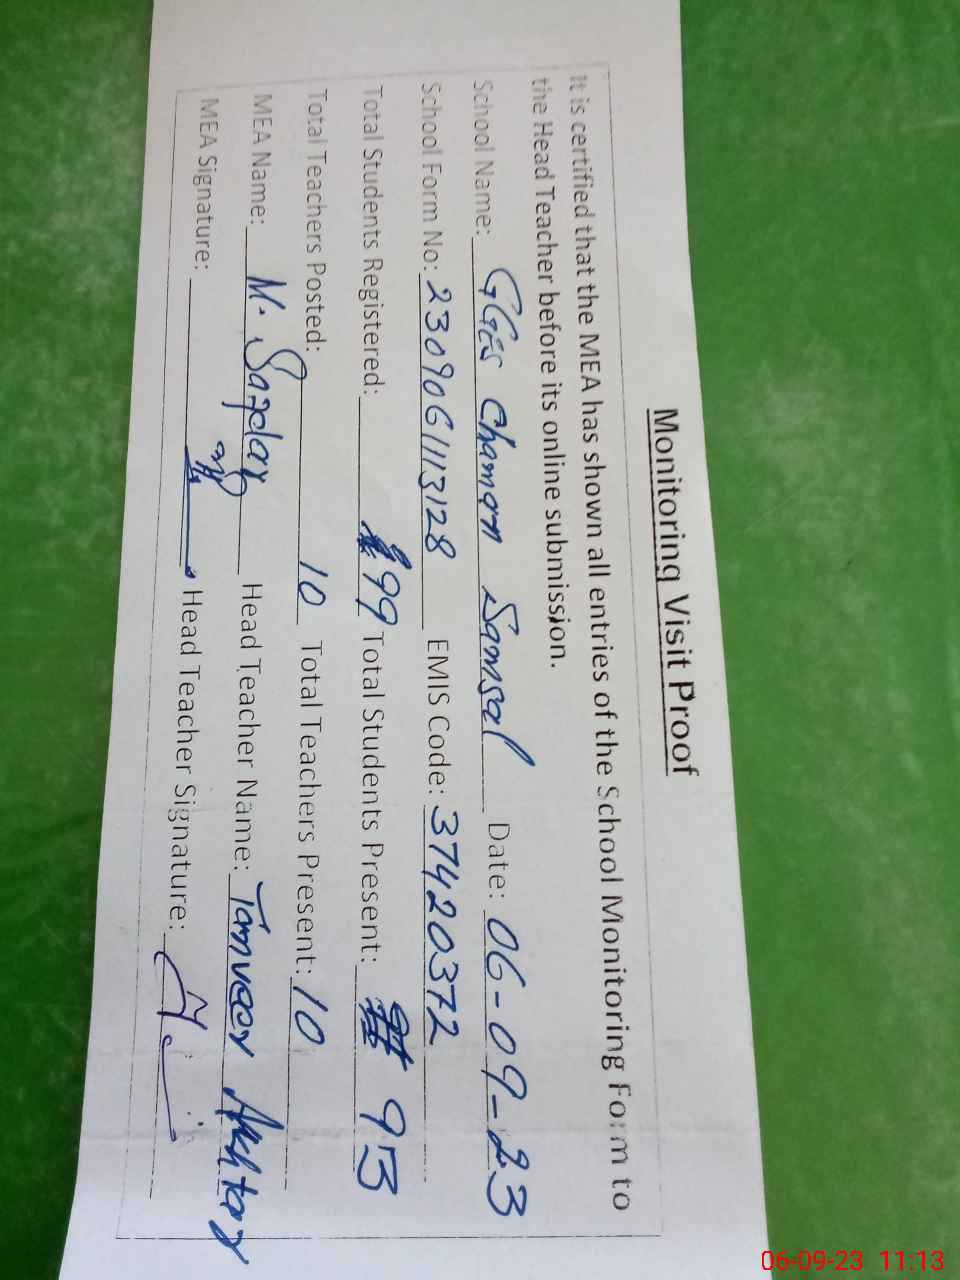 Monitoring Visit Proof
It is certified that the MEA has shown all entries of the School Monitoring Form to
the Head Teacher before its online submission.
School Name: GGES Chaman Samsal Date: 06-09-23
School Form No: 2309061113128 EMIS Code: 37420372
Total Students Registered: 99 Total Students Present: 93
Total Teachers Posted: 10 Total Teachers Present: 10
MEA Name: M. Safdar Head Teacher Name: Tanveer Akhtar
MEA Signature: Head Teacher Signature:
06-09-23 11:13